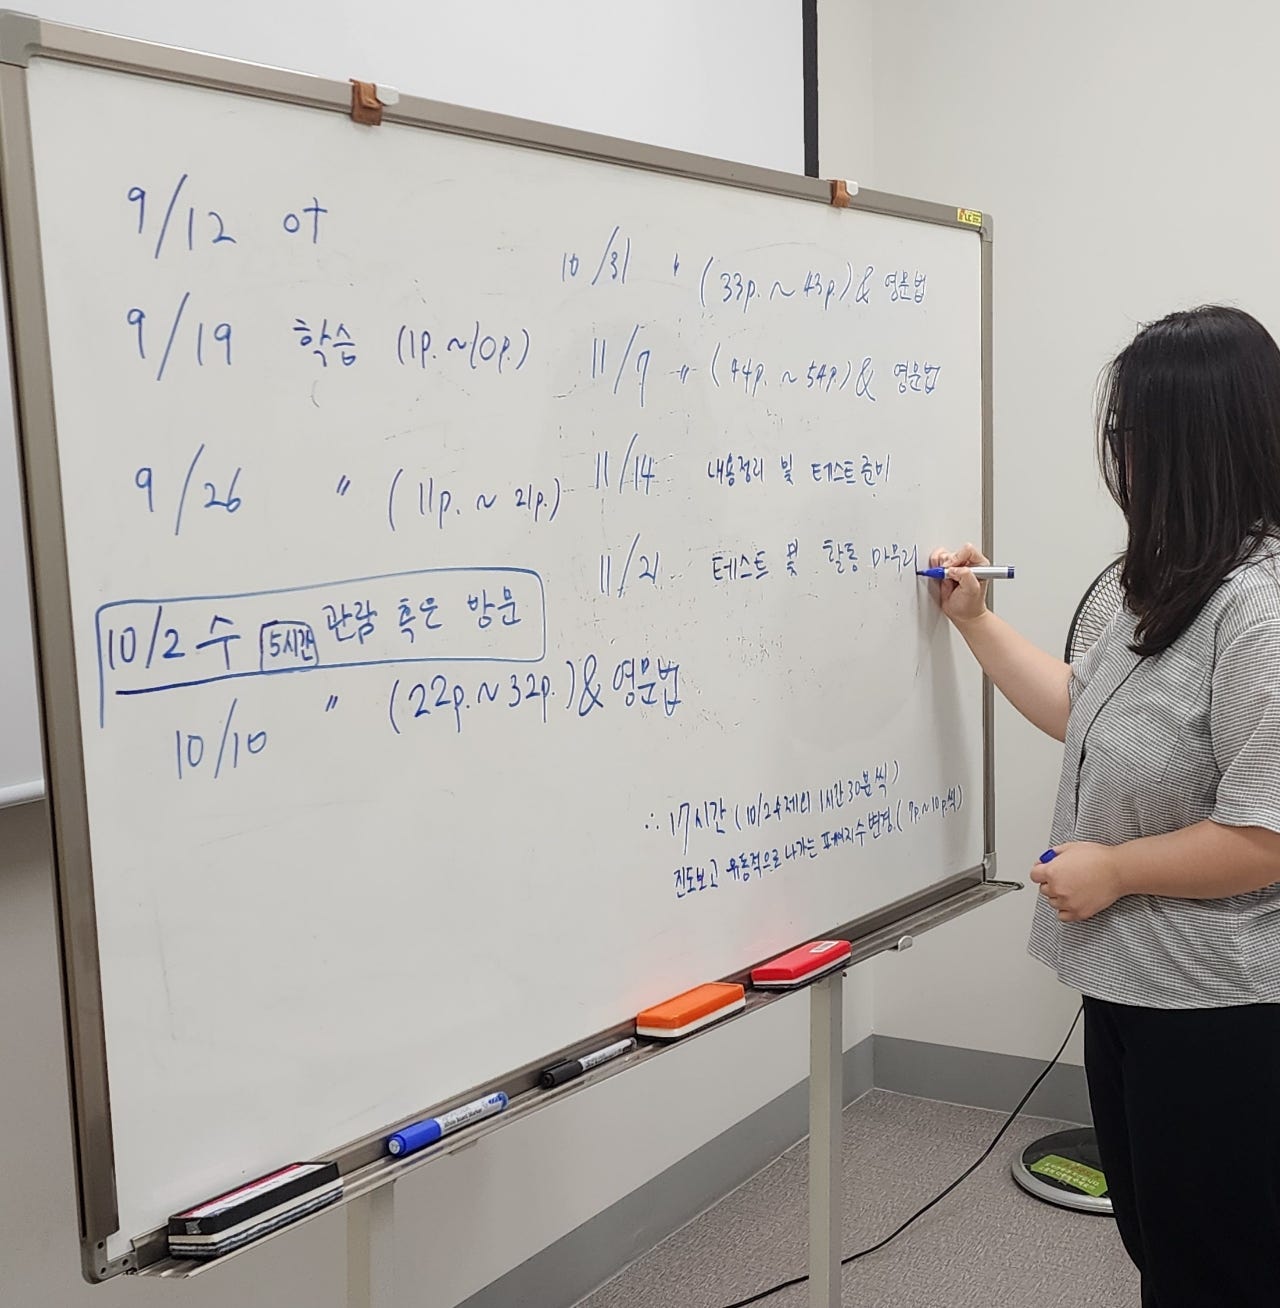 9/12 OT
9/19 학습 (1p. ~ 10p.)
9/26 〃 (11p. ~ 21p.)
10/2 수 5시간 관람 혹은 방문
10/10 〃 (22p. ~ 32p.) & 영문법
10/31 〃 (33p. ~ 43p.) & 영문법
11/7 〃 (44p. ~ 54p.) & 영문법
11/14 내용정리 및 테스트 준비
11/21 테스트 및 활동 마무리
∴ 17시간 (10/2 수 제외 1시간 30분씩)
진도보고 유동적으로 나가는 페이지수 변경. (7p. ~ 10p.씩)